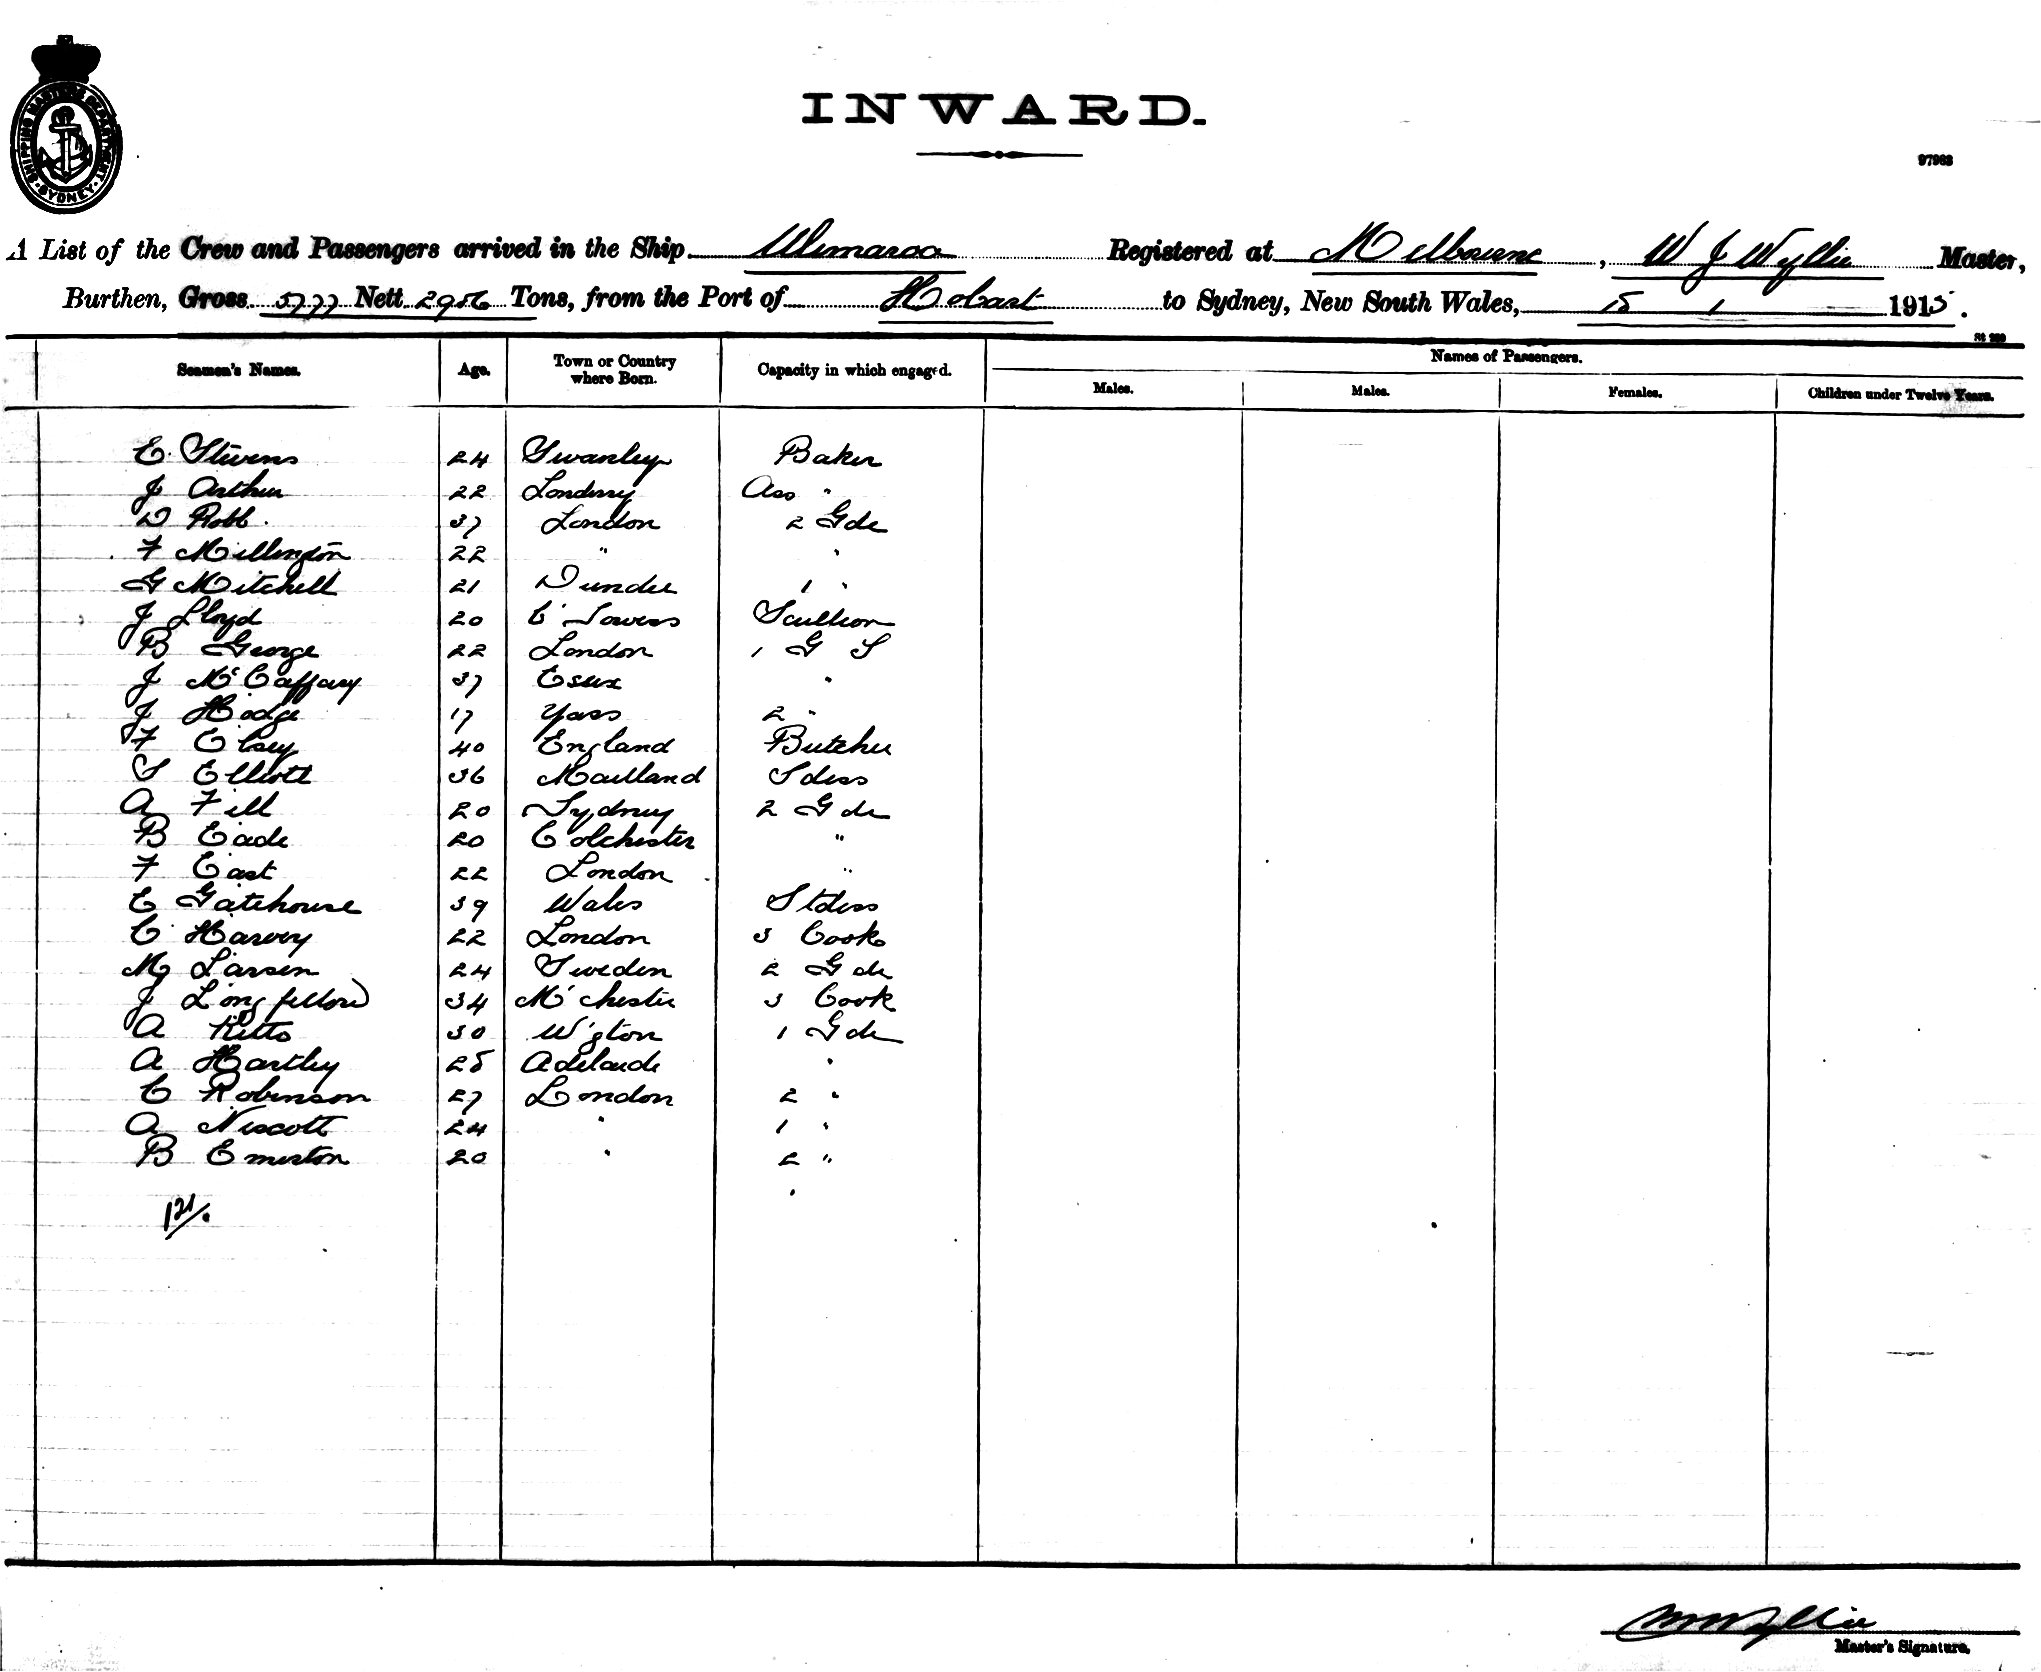 SHIPPING MASTER'S DEPARTMENT · SYDNEY ·
INWARD.
97963
A List of the Crew and Passengers arrived in the Ship Ulimaroa Registered at Melbourne, W J Wyllie Master,
Burthen, Gross 5777 Nett 2956 Tons, from the Port of Hobart to Sydney, New South Wales, 15 1 1915.
Seamen's Names. Age. Town or Country where Born. Capacity in which engaged. Names of Passengers.
Males. Males. Females. Children under Twelve Years.
E Stevens 24 Swanley Baker
J Arthur 22 Londrry Ass "
D Robb. 37 London 2 Gde
F Millington 22 " "
G Mitchell 21 Dundee 1 "
J Lloyd 20 C' Towers Scullion
B George 22 London 1 G S
J McCaffary 37 Essex "
J Hodge 17 Yass 2 "
F Elsey 40 England Butcher
S Elliott 36 Maitland Sdess
A Fill 20 Sydney 2 Gde
B Eade 20 Colchester "
F East 22 London "
E Gatehouse 39 Wales Stdess
C Harvey 22 London 3 Cook
M Larsen 24 Sweden 2 Gde
J Longfellow 34 M'chester 3 Cook
A Kitto 30 W'gton 1 Gde
A Hartley 25 Adelaide "
C Robinson 27 London 2 "
A Niscott 24 " 1 "
B Emerton 20 " 2 "
121/.
Master's Signature.